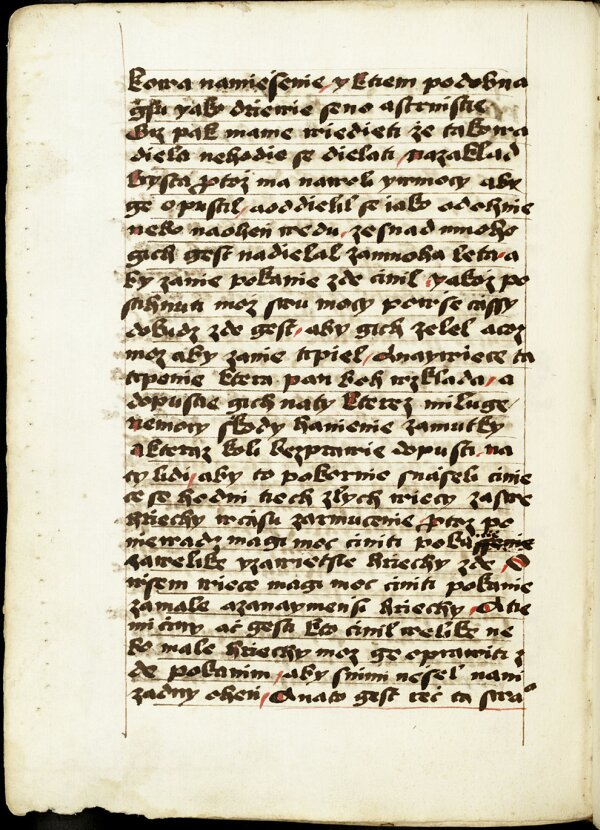 kowa namiesenie y ktiem podobna
gsu yako drzewie seno a strnistie
Giz pak mame wiedieti że takowa
diela nehodie se dielati nazaklad
krysta protoz ma nawoli ymocy aby
ge opustil aoddielil se iako odohnie
nebo naohen wedu ze snad mnoho
gich gest nadielal zamnoha leta a
by zanie pokanie zde cinil yakoz po
stihnuti moz swu mocy potwrse cassy
dokudz zde gest aby gich zelel acoz
moz aby zanie trpiel Anaywiece ta
trpenie ktera pan boh wzklada a
dopustie gich naty kterez miluge
nemocy skody hanienie zamutky
akteraz koli bezprawie dopusti na
ty lidi aby to pokornie snaseli cinie
ce se hodni tiech zlych wiecy zaswe
hriechy wcasu zarmucenie protoz po
nie wadz magi moc ciniti poka
zawelike yzawietsie hriechy zde O
wsem wiece magi moc ciniti pokanie
zamale azanaymensi hriechy Atie
mi ciny ač gesti kto cinil welike ne
bo male hriechy moz ge oprawiti z
de pokanim aby snimi nesel nani
zadny ohen Anato gest reč ta swa